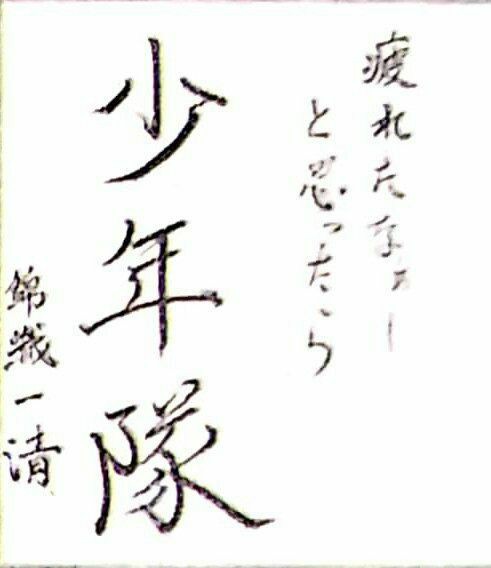 疲れたなァー
と思ったら
少年隊
錦織一清